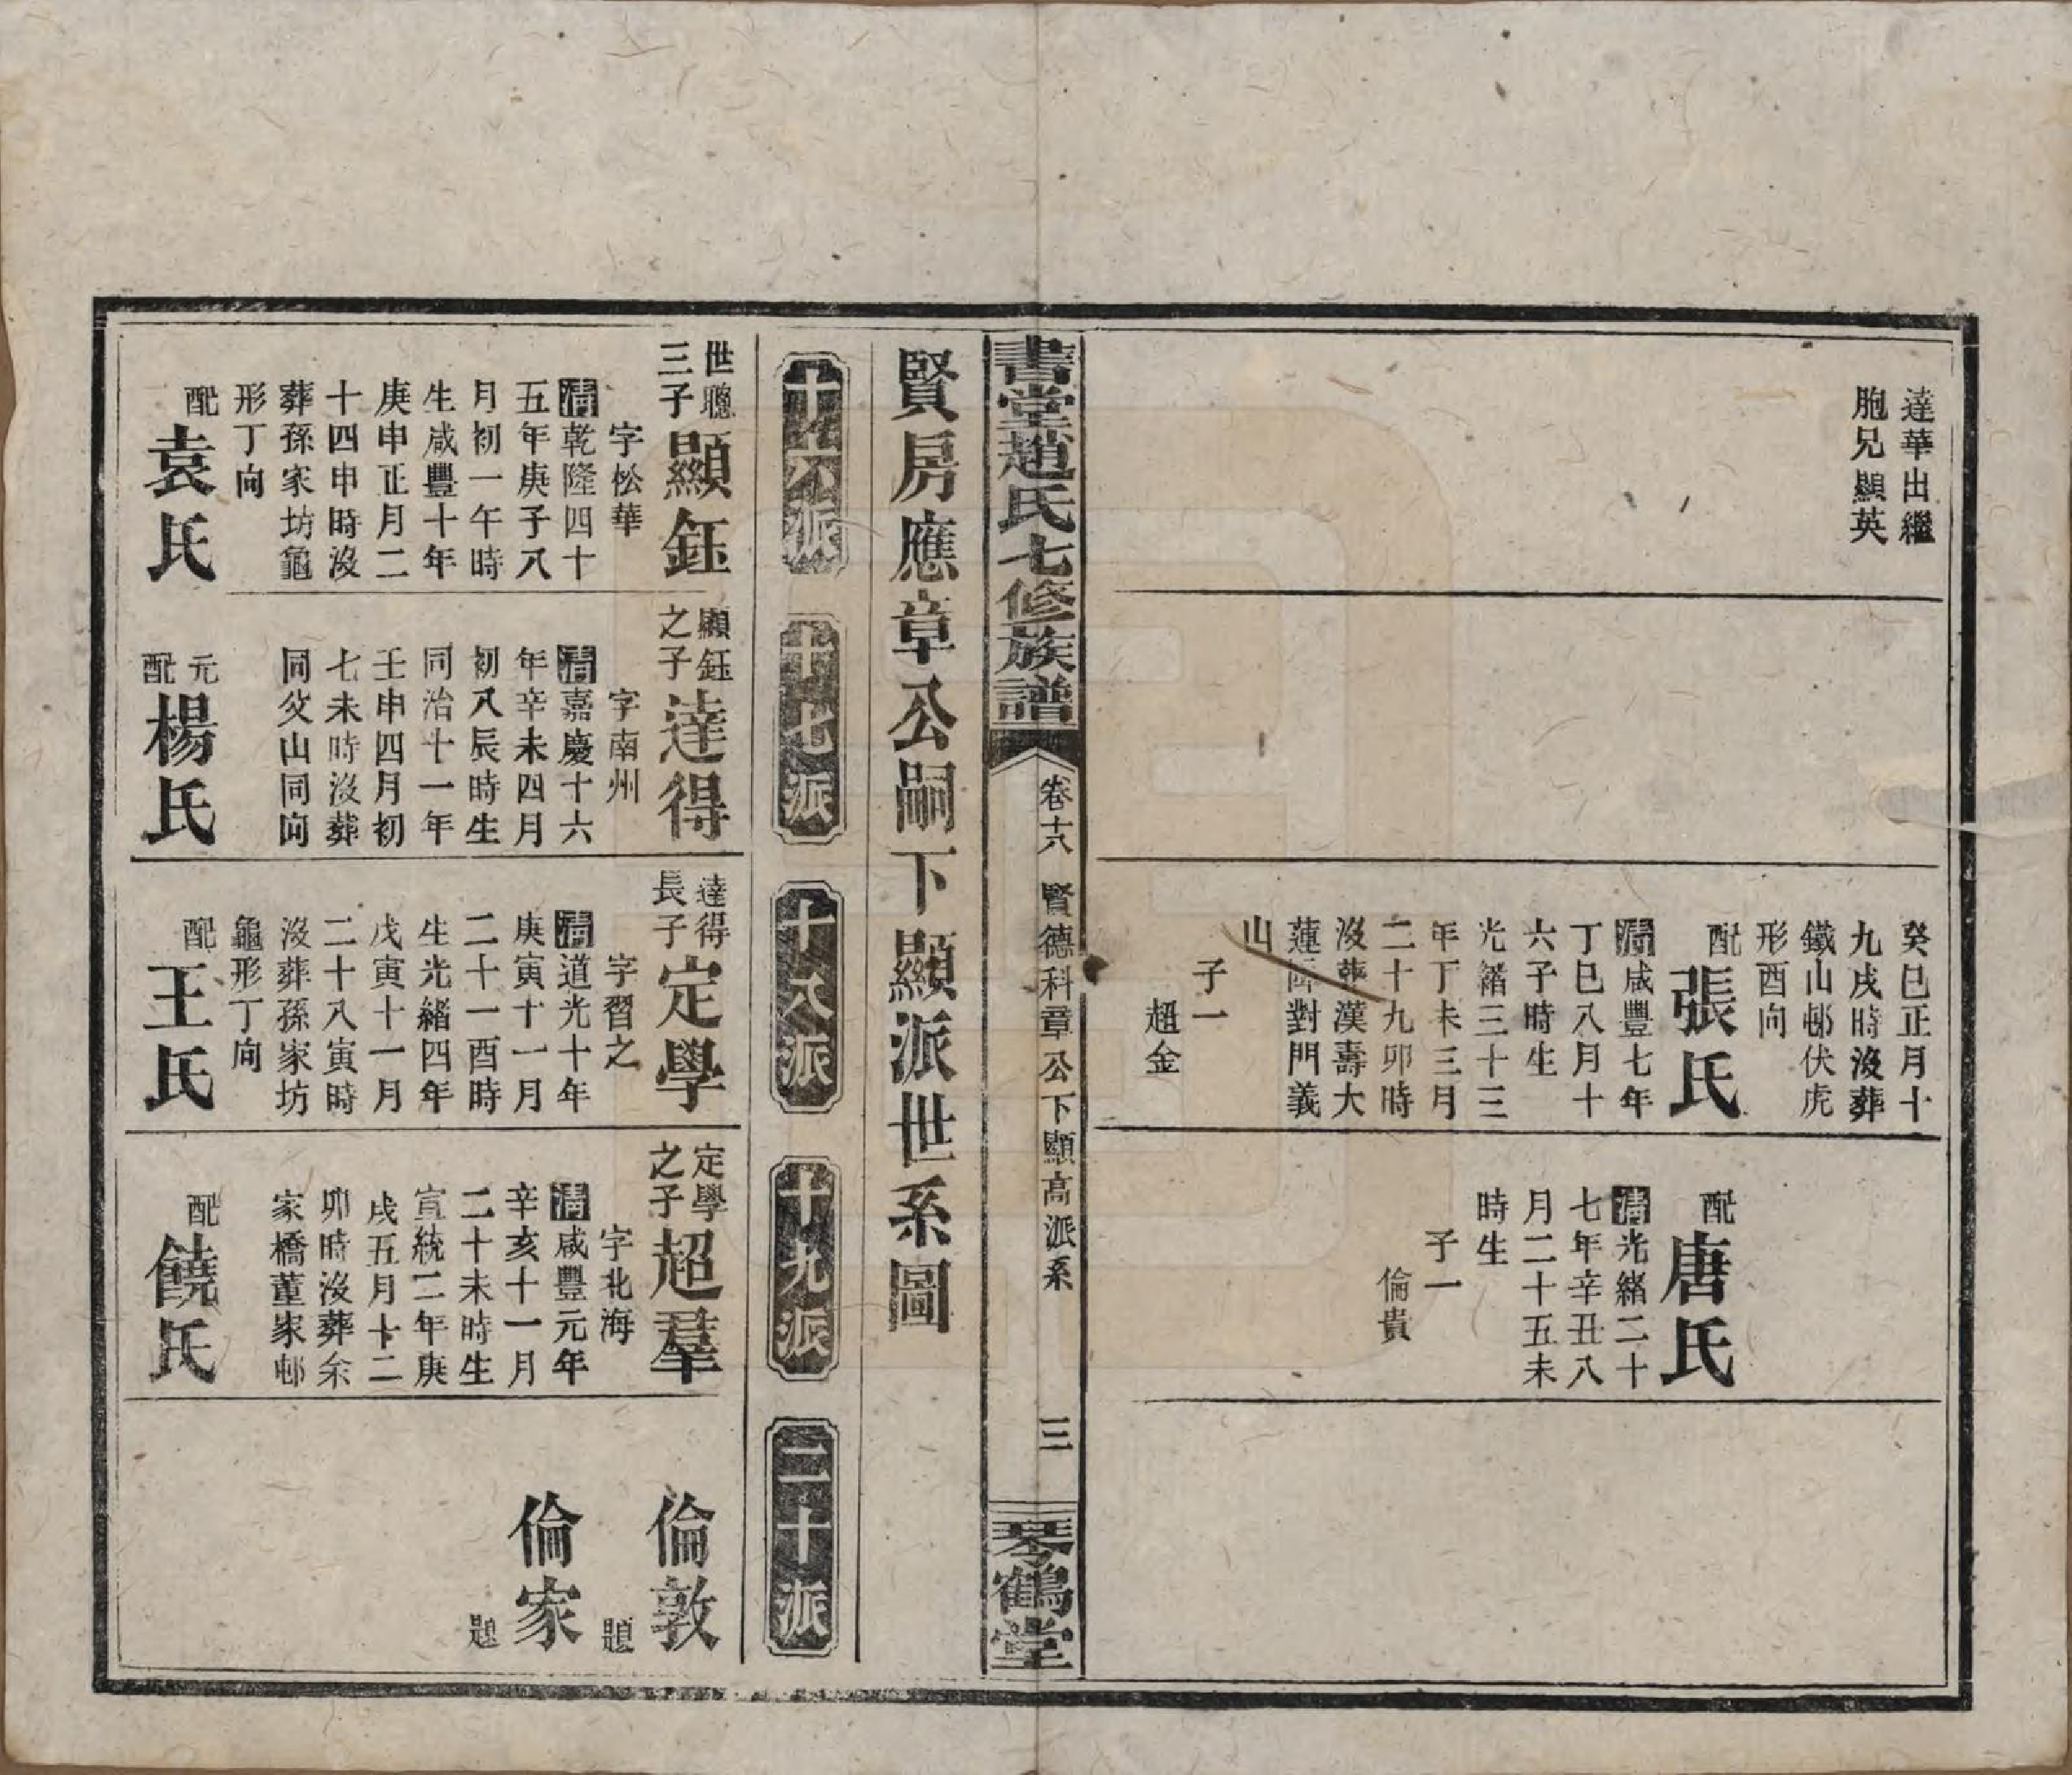 達華出繼
胞兄顯英
癸巳正月十
九戌時沒葬
鐵山邨伏虎
形酉向
配
張氏
清咸豐七年
丁巳八月十
六子時生
光緒三十三
年丁未三月
二十九卯時
沒葬漢壽大
蓮障對門義
山
子一
超金
配
唐氏
清光緒二十
七年辛丑八
月二十五未
時生
子一
倫貴
書堂趙氏七修族譜
卷十八
賢德科章公下顯高派系
三
琴鶴堂
賢房應章公嗣下顯派世系圖
十六派
十七派
十八派
十九派
二十派
世聰
三子
顯鈺
字松華
清乾隆四十
五年庚子八
月初一午時
生咸豐十年
庚申正月二
十四申時沒
葬孫家坊龜
形丁向
配
袁氏
顯鈺
之子
達得
字南州
清嘉慶十六
年辛未四月
初八辰時生
同治十一年
壬申四月初
七未時沒葬
同父山同向
元
配
楊氏
達得
長子
定學
字習之
清道光十年
庚寅十一月
二十一酉時
生光緒四年
戊寅十一月
二十八寅時
沒葬孫家坊
龜形丁向
配
王氏
定學
之子
超羣
字北海
清咸豐元年
辛亥十一月
二十未時生
宣統二年庚
戌五月十二
卯時沒葬余
家橋董家邨
配
饒氏
倫敦
題
倫家
題